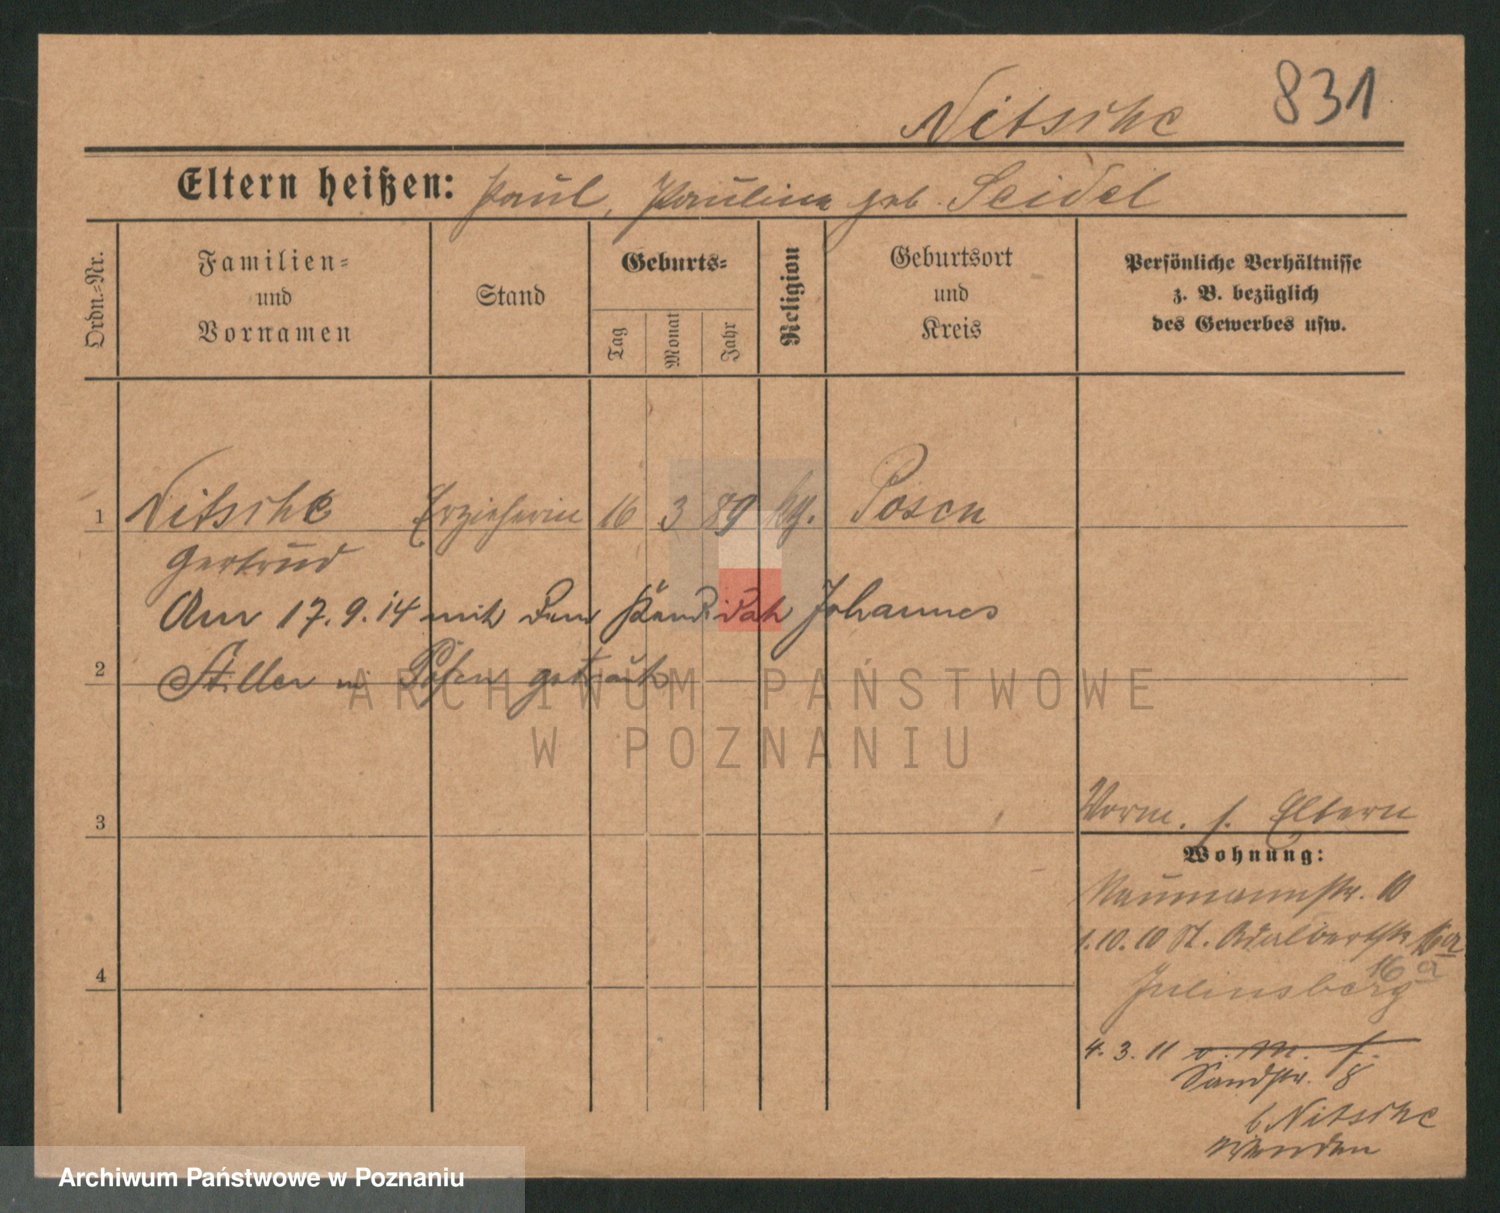 831
Nitsche
Eltern heißen: Paul, Pauline geb. Seidel
Ordn.-Nr.
Familien-
und
Vornamen
Stand
Geburts-
Tag
Monat
Jahr
Religion
Geburtsort
und
Kreis
Persönliche Verhältnisse
z. B. bezüglich
des Gewerbes usw.
1 Nitsche Erzieherin 16 3 89 Posen
Gertrud
Am 17.9.14 mit dem Kandidat Johannes
2 Stiller in Posen getraut
ARCHIWUM PAŃSTWOWE
W POZNANIU
3
Vorm. s. Eltern
Wohnung:
Naumannstr. 10
1.10.10 St. Adalbertstr 16a
16a
4
4.3.11 o. M. f.
Sandstr. 8
b Nitsche
Wenden
Archiwum Państwowe w Poznaniu